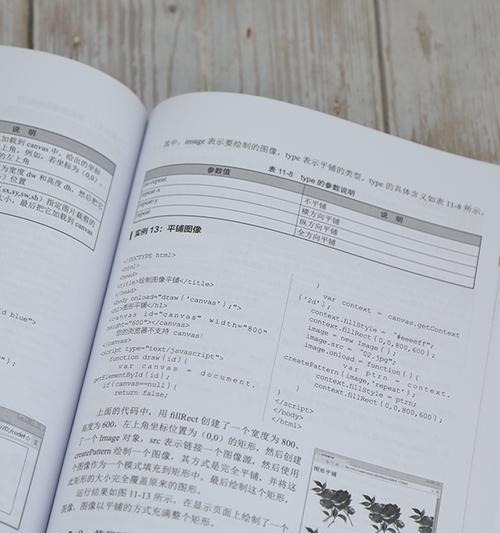 说 明
加载到 canvas 中，给出的坐标
上角，例如，若坐标为（0,0），
的左上角
为宽度 dw 和高度 dh，然后把它
y）位置
sx,sy,sw,sh）指定图片裁剪的
大小，最后把它加载到 canvas
d blue">
其中，image 表示要绘制的图像，type 表示平铺的类型，type 的具体含义如表 11-8 所示。
表 11-8 type 的参数说明
参数值 说 明
no-repeat 不平铺
repeat-x 横方向平铺
repeat-y 纵方向平铺
repeat 全方向平铺
实例 13：平铺图像
<!DOCTYPE html>
<html>
<head>
<title>绘制图像平铺</title>
</head>
<body onload="draw('canvas');">
<h1>图形平铺</h1>
<canvas id="canvas" width="800"
height="600"></canvas>
您的浏览器不支持 canvas!
</canvas>
<script type="text/javascript">
function draw(id){
var canvas = document.
getElementById(id);
if(canvas==null){
return false;
}
var context = canvas.getContext
('2d');
context.fillStyle = "#eeeeff";
context.fillRect(0,0,800,600);
image = new Image();
image.src = "02.jpg";
image.onload = function(){
var ptrn = context.
createPattern(image,'repeat');
context.fillStyle = ptrn;
context.fillRect(0,0,800,600);
}
}
</script>
</body>
</html>
上面的代码中，用 fillRect 创建了一个宽度为 800、
高度为 600，左上角坐标位置为（0,0）的矩形，然后创建
了一个 Image 对象，src 表示链接一个图像源，然后使用
createPattern 绘制一个图像，其方式是完全平铺，并将这
个图像作为一个模式填充到矩形中。最后绘制这个矩形，
此矩形的大小完全覆盖原来的图形。
运行结果如图 11-13 所示，在显示页面上绘制了一个
图像，图像以平铺的方式充满整个矩形。
图形平铺